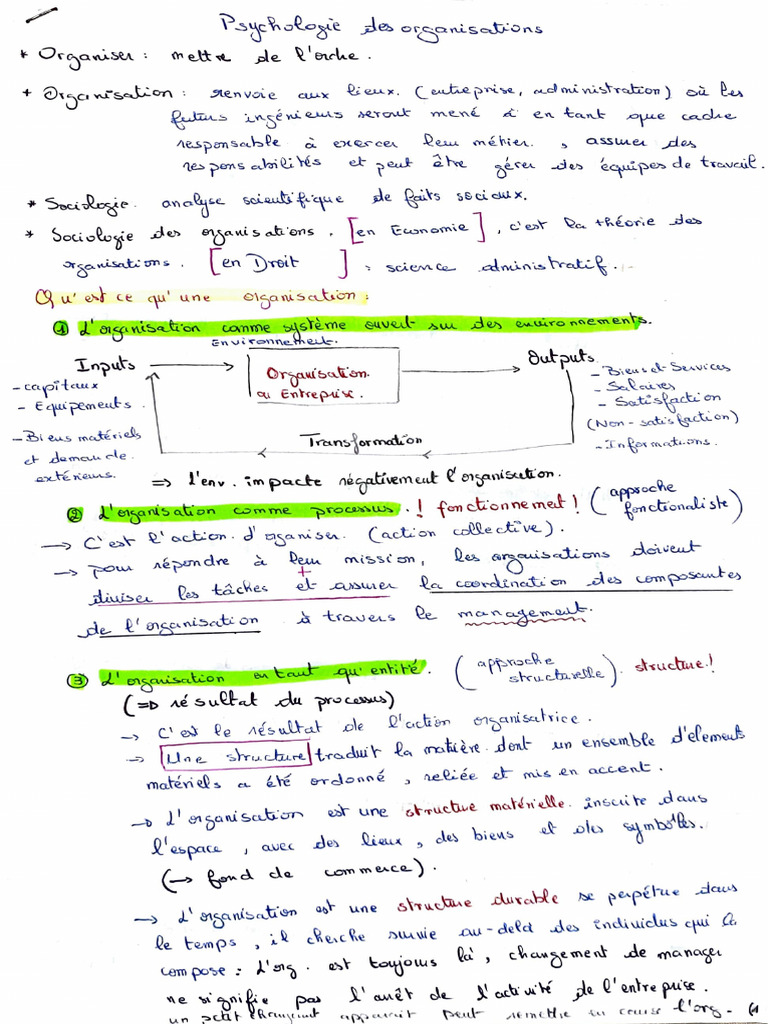 Psychologie des organisations
* Organiser : mettre de l'orche.
+ Organisation : renvoie aux lieux. (entreprise, administration) où les
futurs ingénieurs seront mené à en tant que cadre
responsable à exercer leur métier. , assurer des
responsabilités et peut être gérer des équipes de travail.
* Sociologie. analyse scientifique de faits sociaux.
* Sociologie des organisations. [en Economie], c'est la théorie des
organisations. [en Droit ] : science administratif.
Qu'est ce qu'une organisation :
① L'organisation comme système ouvert sur des environnements.
Environnement.
Inputs
Organisation
ou Entreprise.
Outputs
- capitaux
- Equipements.
- Biens matériels
et demande
extérieurs.
- Biens et Services
- Salaires
- Satisfaction
(Non-satisfaction)
- Informations.
Transformation
⇒ l'env. impacte négativement l'organisation.
② L'organisation comme processus. ! fonctionnement ! (approche
fonctionaliste)
→ C'est l'action d'organiser. (action collective).
→ pour répondre à leur mission, les organisations doivent
diviser les tâches + et assurer la coordination des composantes
de l'organisation à travers le management.
③ L'organisation en tant qu'entité. (approche
structurelle). structure !
(⇒ résultat du processus)
→ C'est le résultat de l'action organisatrice.
→ Une structure traduit la matière dont un ensemble d'élements
matériels a été ordonné, reliée et mis en accent.
→ L'organisation est une structure matérielle. inscrite dans
l'espace, avec des lieux, des biens et des symboles.
(→ fond de commerce).
→ L'organisation est une structure durable se perpétue dans
le temps, il cherche survie au-delà des individus qui la
compose : L'org. est toujours là, changement de manager
ne signifie pas l'arrêt de l'activité de l'entreprise.
un petit changment apparait peut remettre en cause l'org-